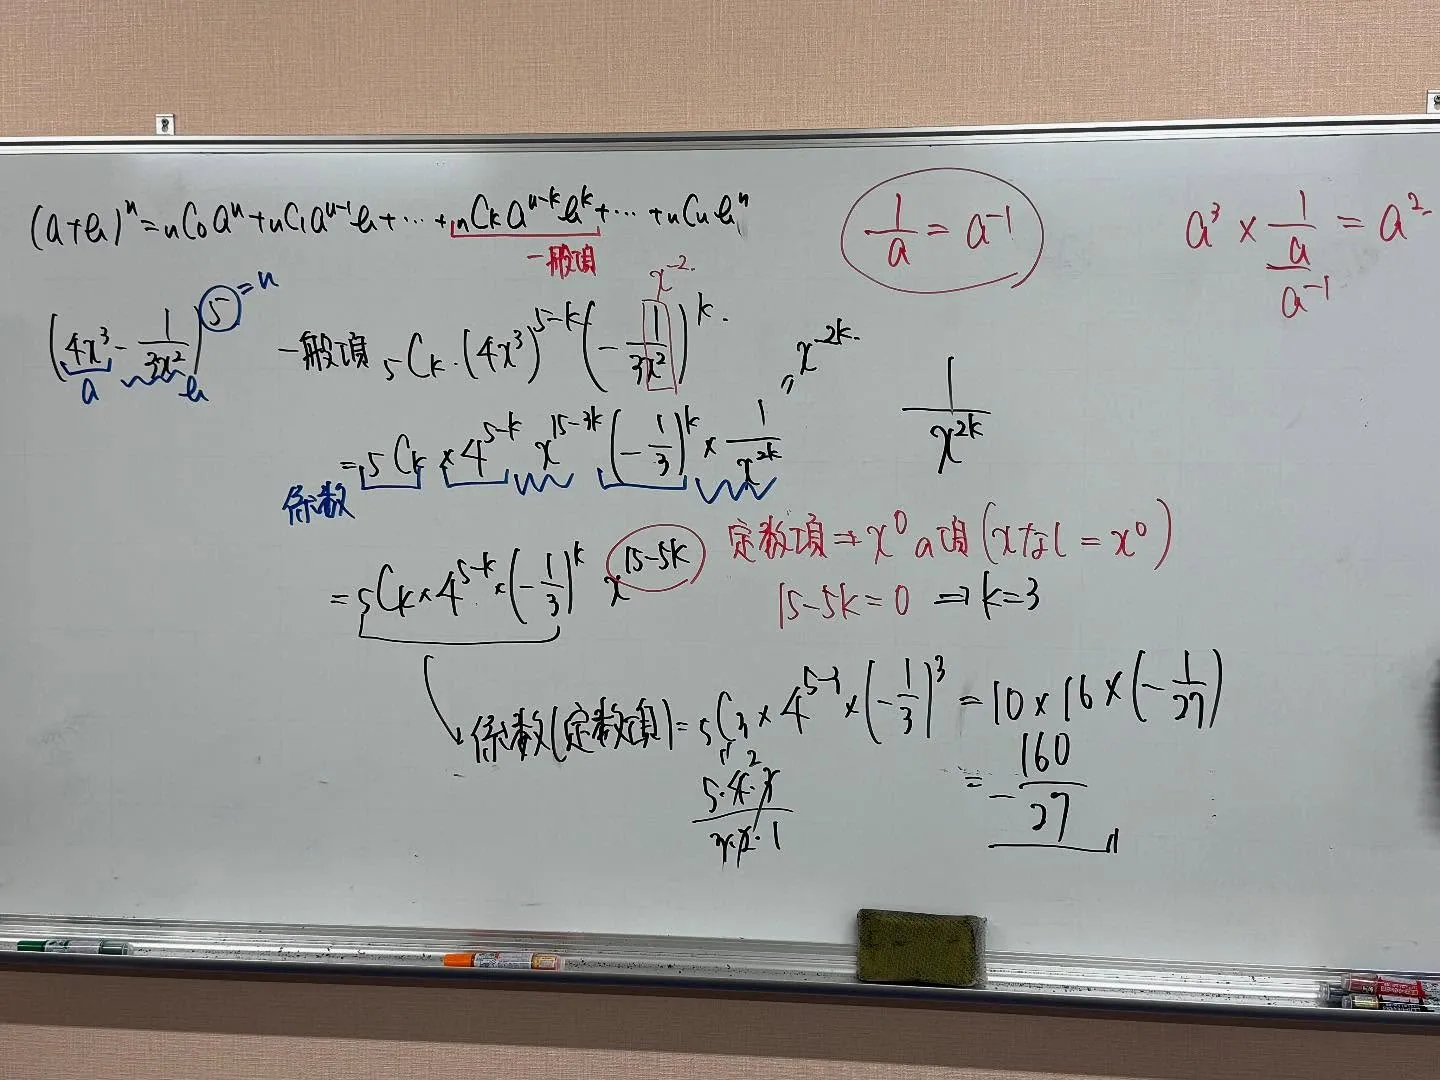 (a+b)ⁿ = ₙC₀aⁿ + ₙC₁aⁿ⁻¹b + ⋯ + ₙCₖaⁿ⁻ᵏbᵏ + ⋯ + ₙCₙbⁿ
一般項
1/a = a⁻¹
a³ × 1/a = a²
a⁻¹
(4x³ - 1/3x²)⁵ = n
a b
一般項 ₅Cₖ·(4x³)⁵⁻ᵏ(-1/3x²)ᵏ
x⁻²
= ₅Cₖ × 4⁵⁻ᵏ x¹⁵⁻³ᵏ (-1/3)ᵏ × 1/x²ᵏ
= x⁻²ᵏ
1/x²ᵏ
係数
= ₅Cₖ × 4⁵⁻ᵏ × (-1/3)ᵏ x¹⁵⁻⁵ᵏ
定数項 ⇒ x⁰の項 (xなし = x⁰)
15-5k=0 ⇒ k=3
係数(定数項) = ₅C₃ × 4⁵⁻³ × (-1/3)³ = 10 × 16 × (-1/27)
= 5·4·3/3·2·1
2
= -160/27